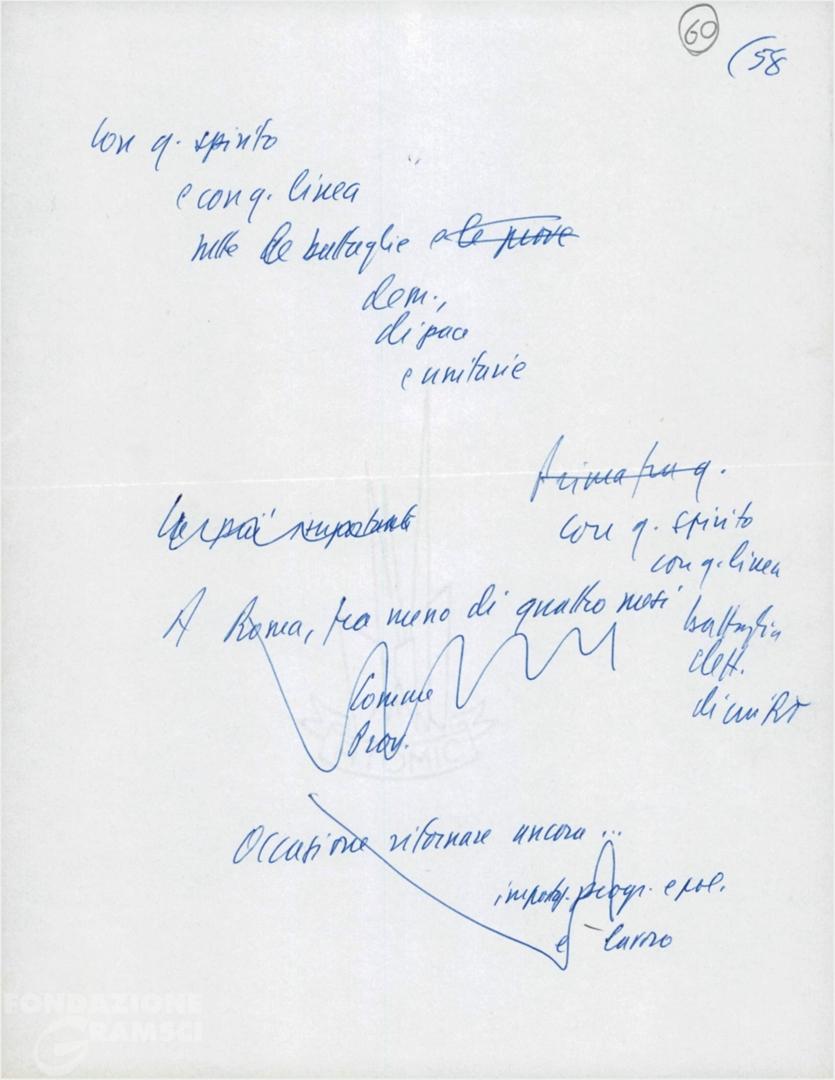 60
(58
Con q. spirito
e con q. linea
nelle battaglie e le prove
dem.,
di pace
e unitarie
Prima fra q.
con q. spirito
con q. linea
A Roma, tra meno di quattro mesi
battaglia
elett.
di unità
Comune
Prov.
Occasione ritornare ancora ...
impostaz. progr. e pol.
e lavoro
FONDAZIONE
GRAMSCI